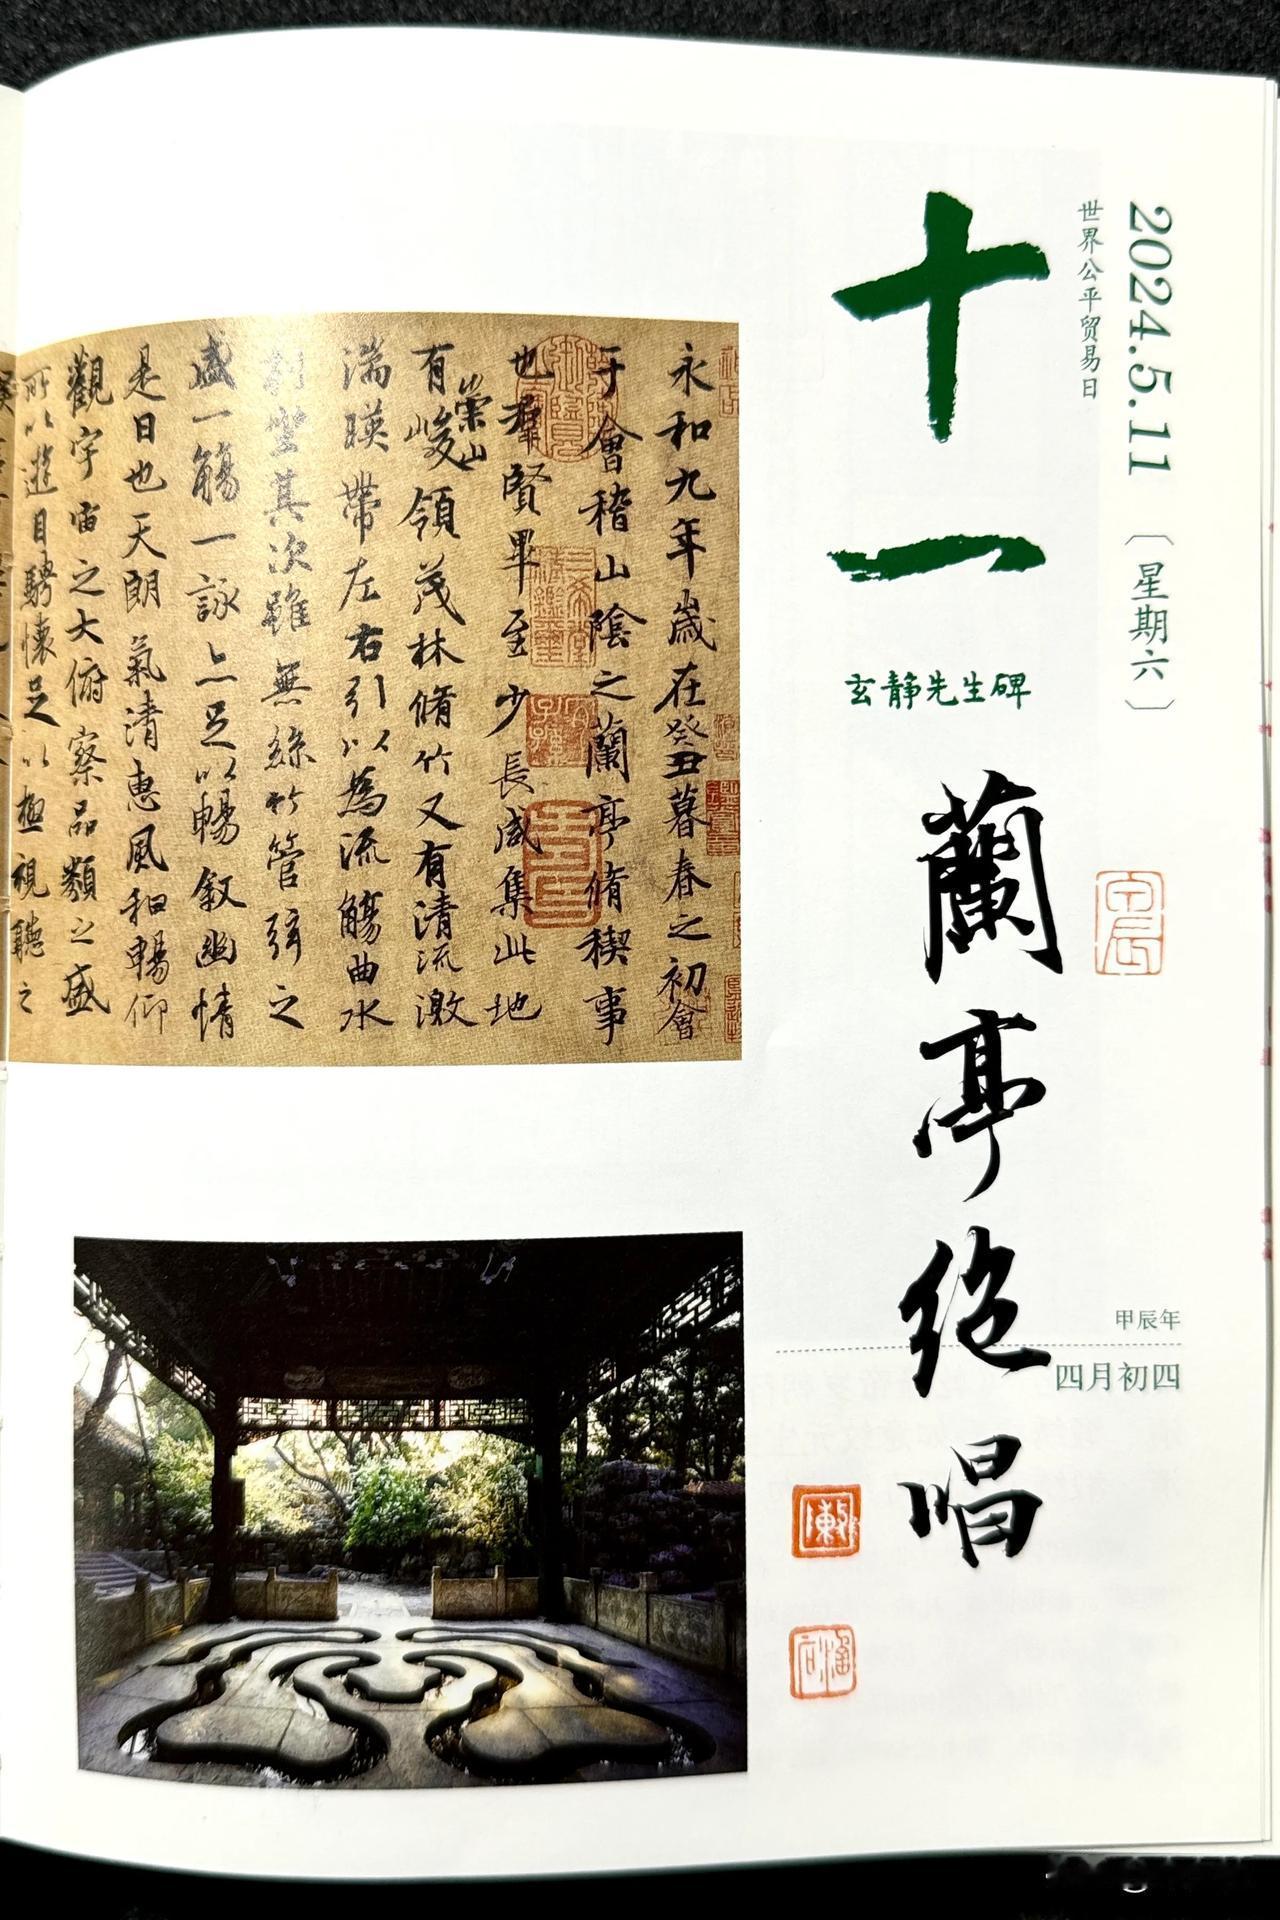 2024.5.11〔星期六〕
世界公平贸易日
十一
玄静先生碑
蘭亭绝唱
甲辰年
四月初四
永和九年歲在癸丑暮春之初會
于會稽山陰之蘭亭脩稧事
也群賢畢至少長咸集此地
有崇山峻領茂林脩竹又有清流激
湍暎帶左右引以為流觴曲水
列坐其次雖無絲竹管弦之
盛一觴一詠亦足以暢敘幽情
是日也天朗氣清惠風和暢仰
觀宇宙之大俯察品類之盛
所以遊目騁懷足以極視聽之